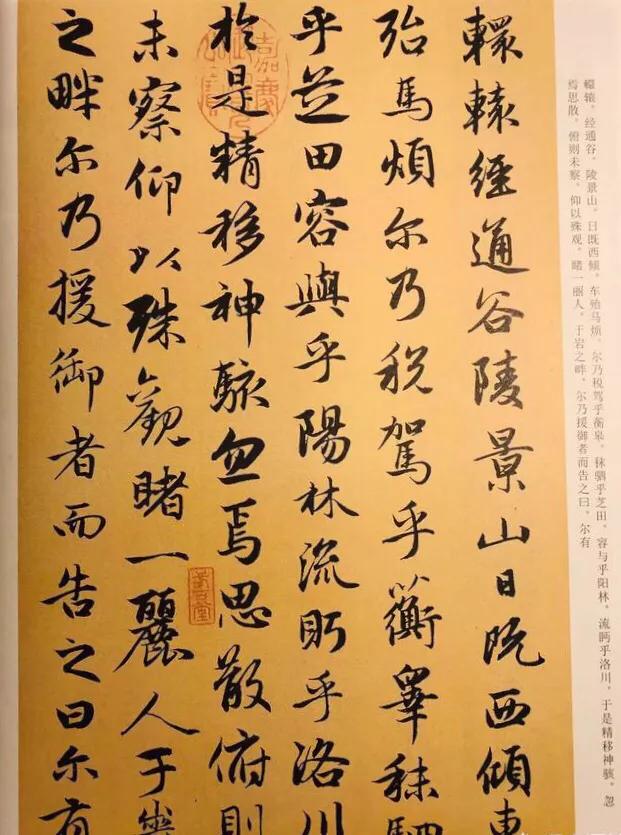 轘辕，经通谷，陵景山。日既西倾，车殆马烦。尔乃税驾乎衡皋，秣驷乎芝田，容与乎阳林，流眄乎洛川，于是精移神骇，忽
焉思散，俯则未察，仰以殊观，睹一丽人，于岩之畔，尔乃援御者而告之曰，尔有
轘轅經通谷陵景山日既西傾車
殆馬煩尔乃税駕乎蘅皋秣駟
乎芝田容與乎陽林流眄乎洛川
於是精移神駭忽焉思散俯則
未察仰以殊觀睹一麗人于巖
之畔尔乃援御者而告之曰尔有